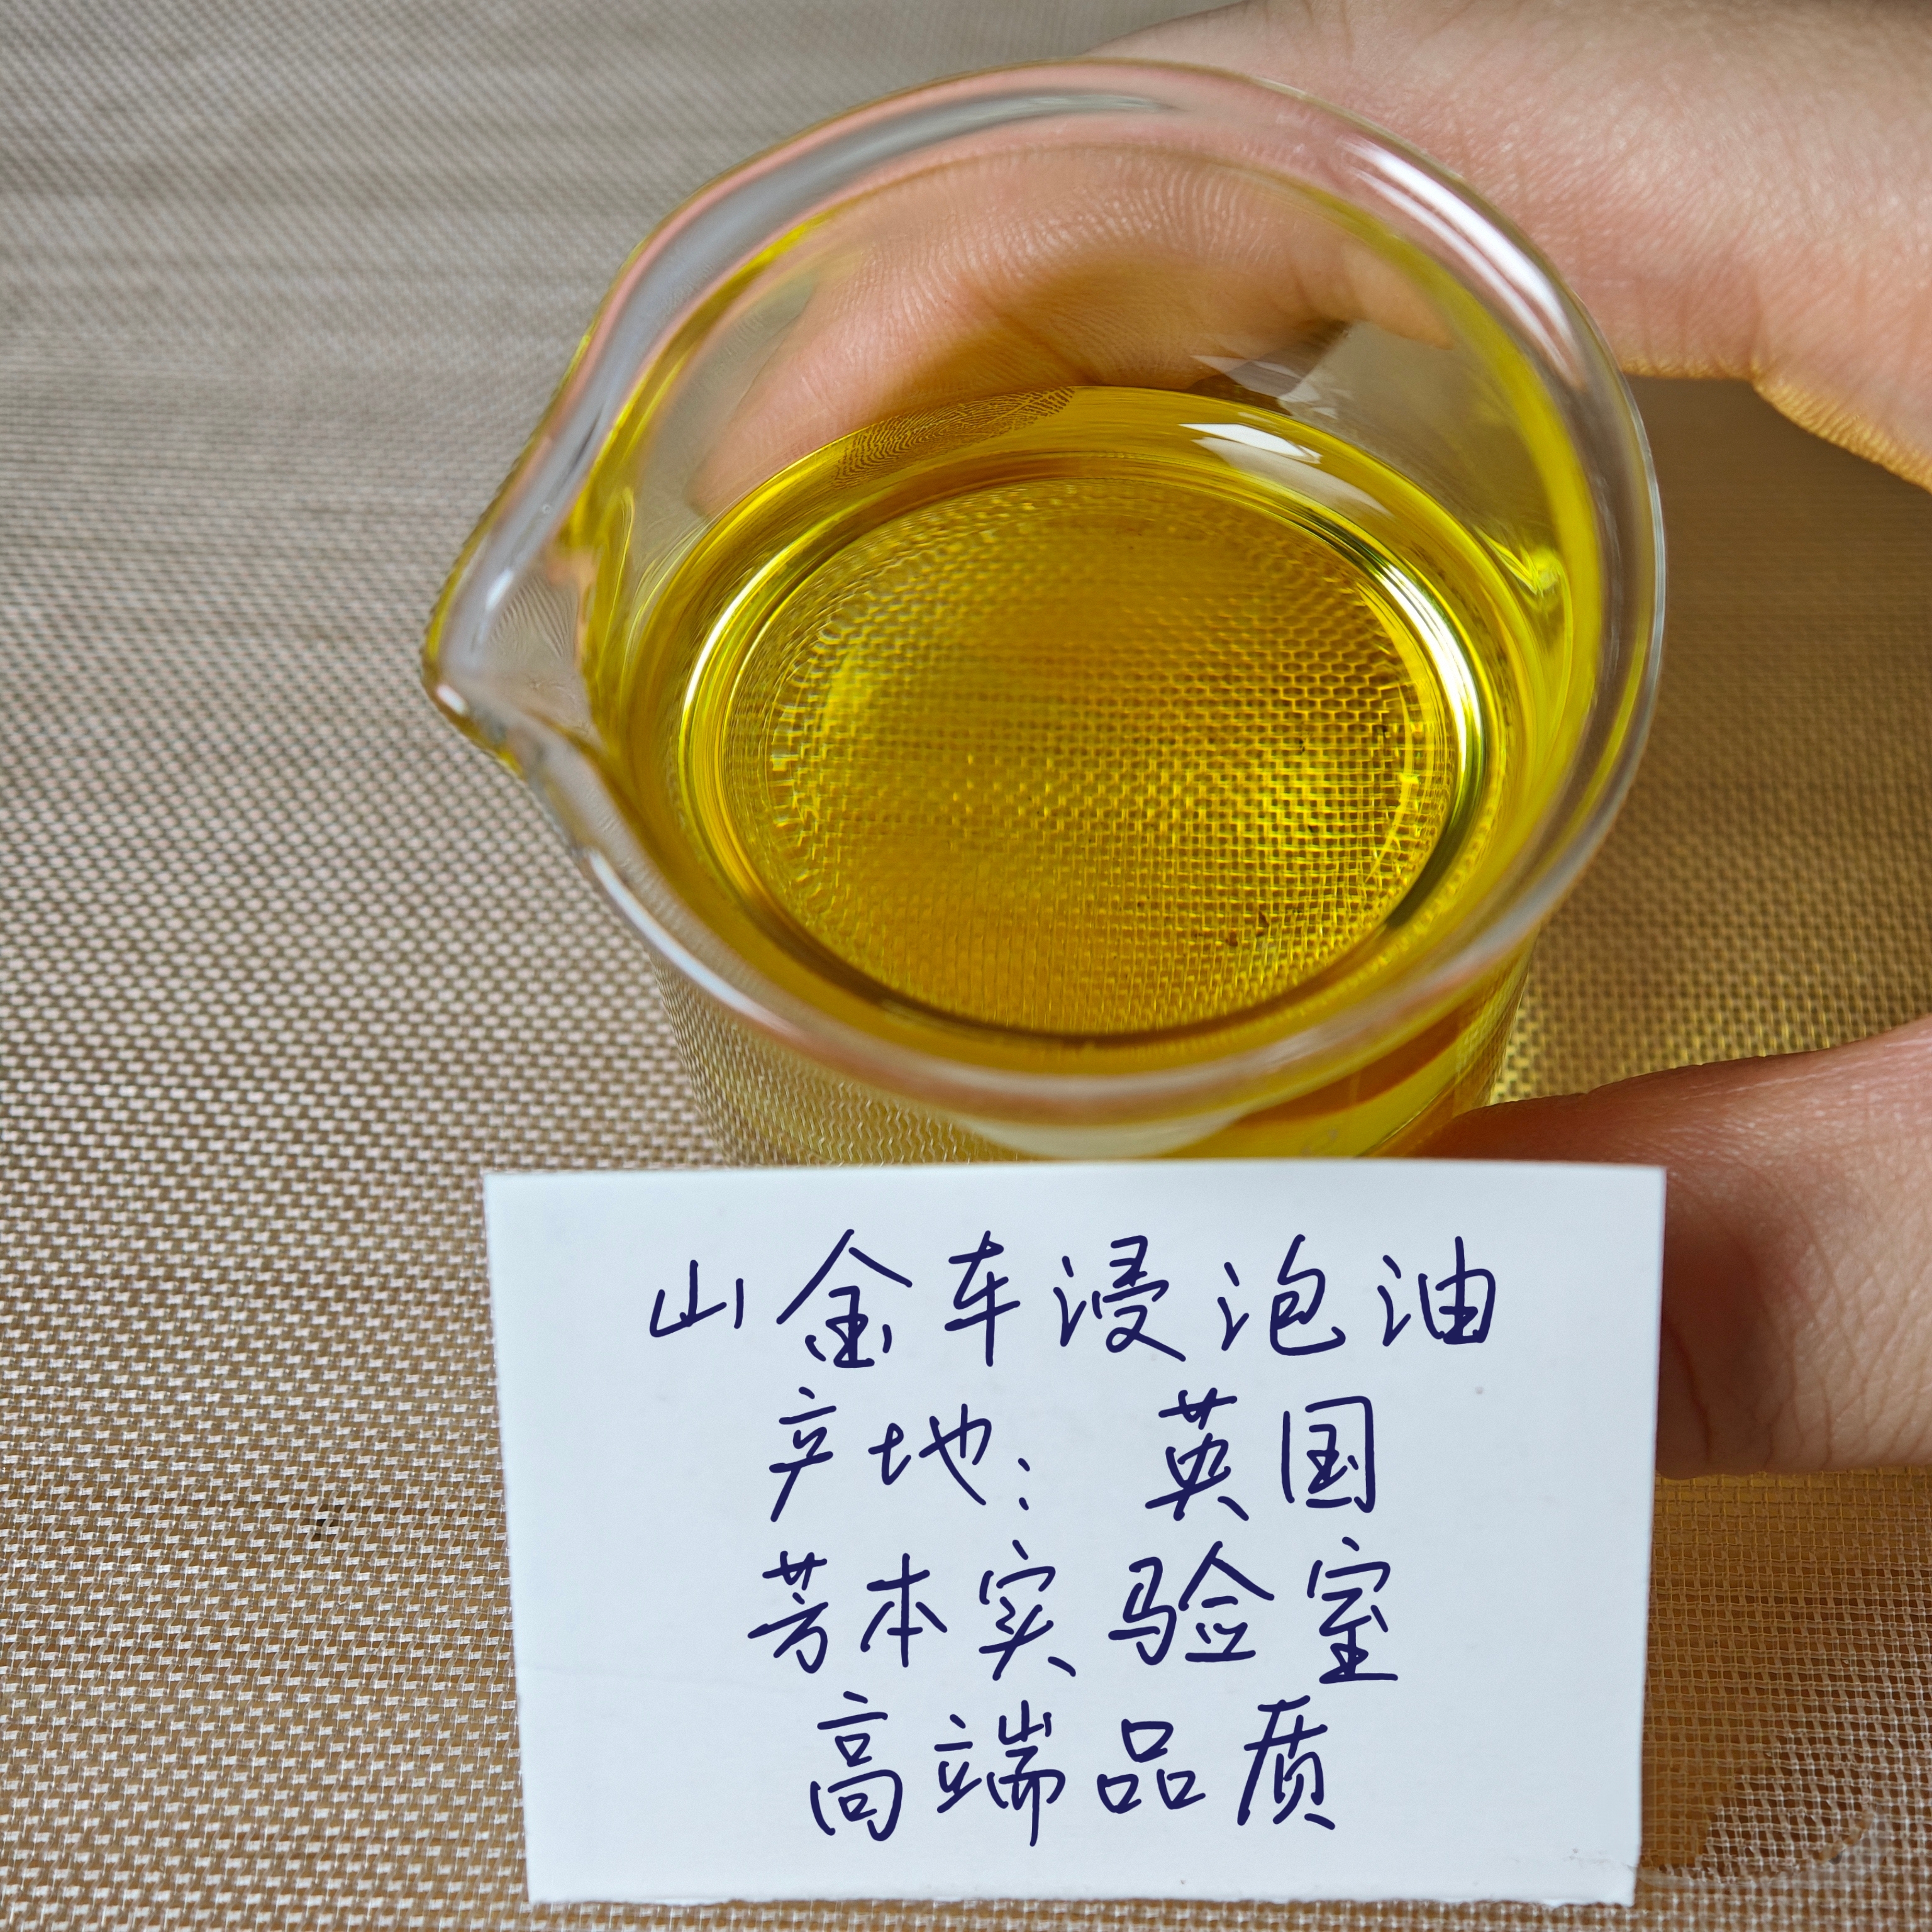 山金车浸泡油
产地：英国
芳本实验室
高端品质